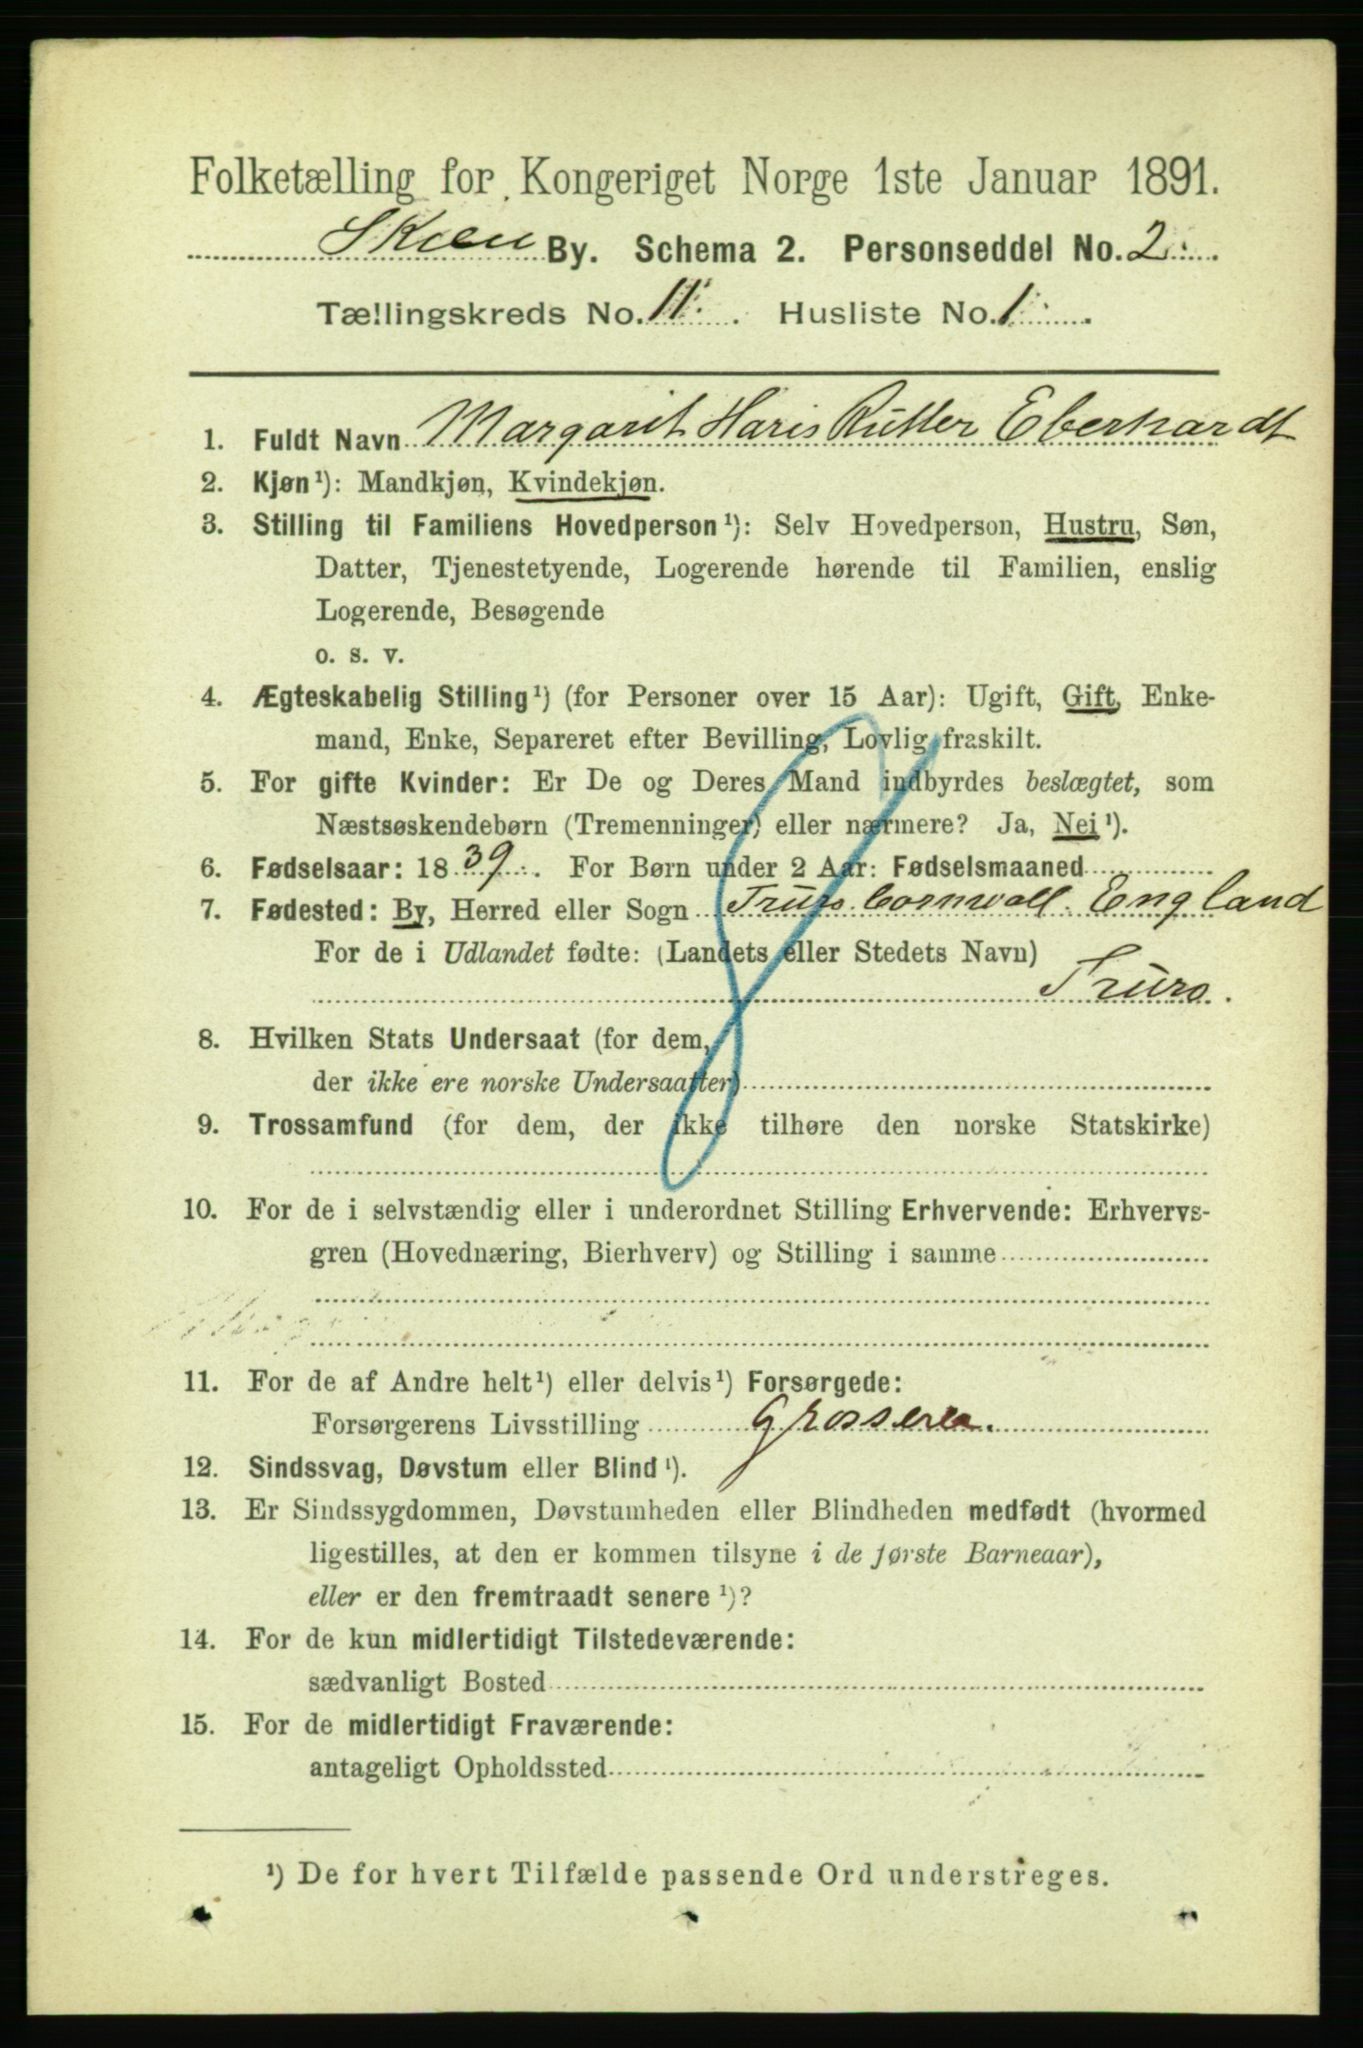 Folketælling for Kongeriget Norge 1ste Januar 1891.
Skien By. Schema 2. Personseddel No. 2.
Tællingskreds No. 11. Husliste No. 1.
1. Fuldt Navn Margarit Haris Rutter Eberhardt
2. Kjøn¹): Mandkjøn, Kvindekjøn.
3. Stilling til Familiens Hovedperson¹): Selv Hovedperson, Hustru, Søn,
Datter, Tjenestetyende, Logerende hørende til Familien, enslig
Logerende, Besøgende
o. s. v.
4. Ægteskabelig Stilling¹) (for Personer over 15 Aar): Ugift, Gift, Enke-
mand, Enke, Separeret efter Bevilling, Lovlig fraskilt.
5. For gifte Kvinder: Er De og Deres Mand indbyrdes beslægtet, som
Næstsøskendebørn (Tremenninger) eller nærmere? Ja, Nei¹).
6. Fødselsaar: 1839. For Børn under 2 Aar: Fødselsmaaned
7. Fødested: By, Herred eller Sogn Truro Cornwall. England
For de i Udlandet fødte: (Landets eller Stedets Navn)
Truro.
8. Hvilken Stats Undersaat (for dem,
der ikke ere norske Undersaatter)
9. Trossamfund (for dem, der ikke tilhøre den norske Statskirke)
10. For de i selvstændig eller i underordnet Stilling Erhvervende: Erhvervs-
gren (Hovednæring, Bierhverv) og Stilling i samme
11. For de af Andre helt¹) eller delvis¹) Forsørgede:
Forsørgerens Livsstilling Grosserer.
12. Sindssvag, Døvstum eller Blind¹).
13. Er Sindssygdommen, Døvstumheden eller Blindheden medfødt (hvormed
ligestilles, at den er kommen tilsyne i de første Barneaar),
eller er den fremtraadt senere¹)?
14. For de kun midlertidigt Tilstedeværende:
sædvanligt Bosted
15. For de midlertidigt Fraværende:
antageligt Opholdssted
¹) De for hvert Tilfælde passende Ord understreges.